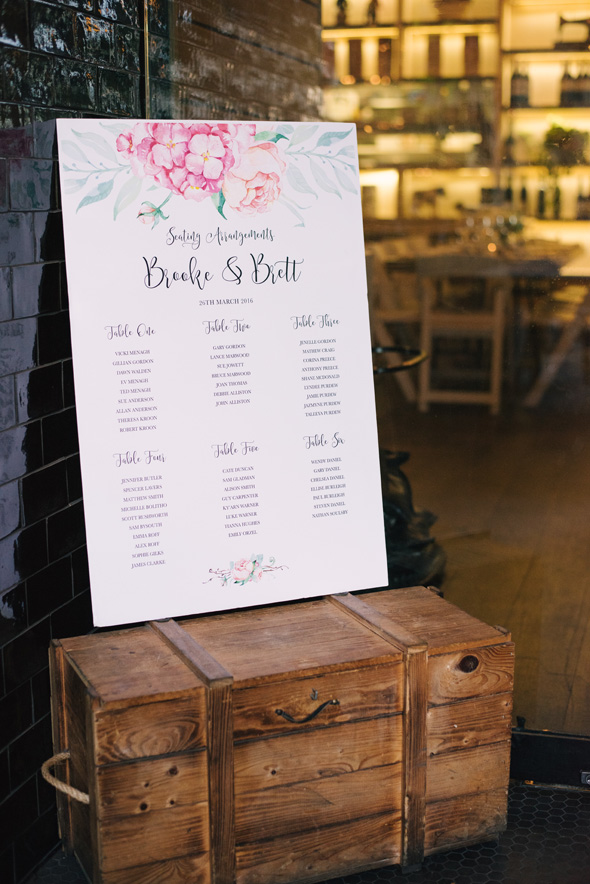 Seating Arrangements
Brooke & Brett
26TH MARCH 2016
Table One
VICKI MENAGH
GILLIAN GORDON
DAWN WALDEN
EV MENAGH
TED MENAGH
SUE ANDERSON
ALLAN ANDERSON
THERESA KROON
ROBERT KROON
Table Two
GARY GORDON
LANCE MARWOOD
SUE JOWETT
BRUCE MARWOOD
JOAN THOMAS
DEBBIE ALLISTON
JOHN ALLISTON
Table Three
JENELLE GORDON
MATHEW CRAIG
CORINA PREECE
ANTHONY PREECE
SHANE MCDONALD
LYNDEE PURDEN
JAMIE PURDEN
JAZMYNE PURDEN
TALLEYA PURDEN
Table Four
JENNIFER BUTLER
SPENCER LAVERS
MATTHEW SMITH
MICHELLE BOLITHO
SCOTT RUSHWORTH
SAM
EMMA ROFF
ALEX ROFF
SOPHIE GILKS
JAMES CLARKE
Table Five
CATE DUNCAN
SAM GLADMAN
ALISON SMITH
GUY CARPENTER
WARNER
LUKE WARNER
TIANNA HUGHES
EMILY
Table Six
WENDY DANIEL
GARY DANIEL
CHELSEA DANIEL
ELLISE BURLEIGH
PAUL BURLEIGH
STEVEN DANIEL
NATHAN